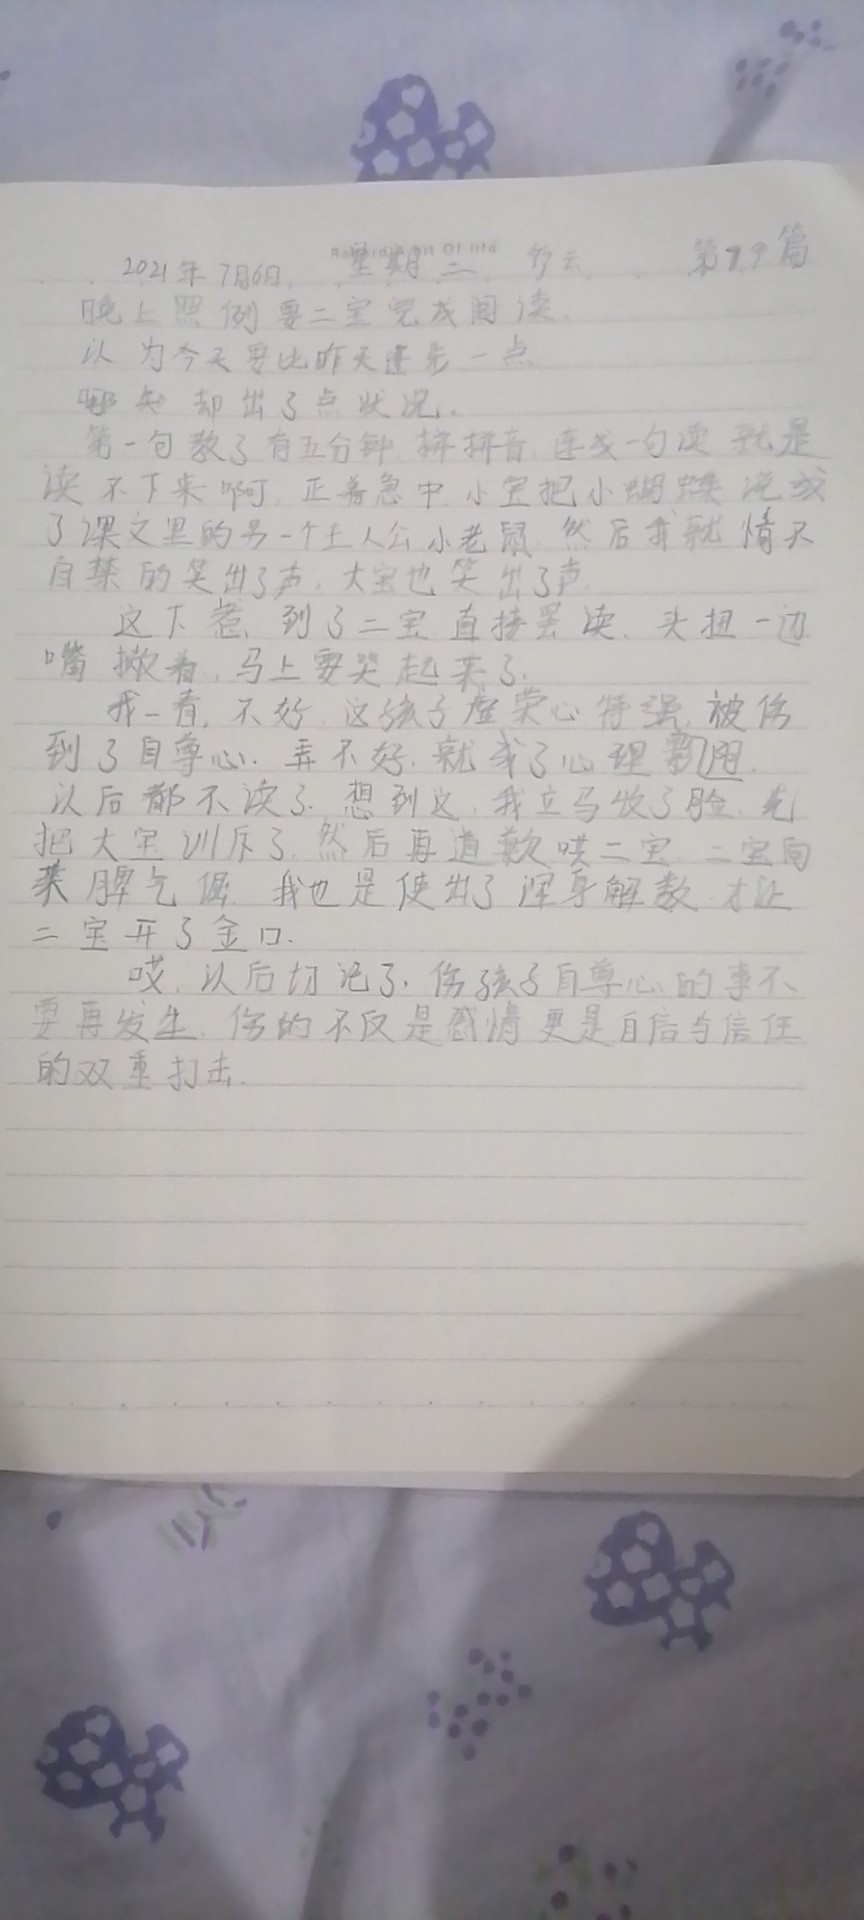 2021年7月6日 星期二 多云 第79篇
晚上照例要二宝完成阅读.
认为今天要比昨天进步一点
哪知却出了点状况.
第一句教了有五分钟.拼拼音.连成一句读就是
读不下来啊.正着急中.小宝把小蝴蝶说成
了课文里的另一个主人公小老鼠.然后我就情不
自禁的笑出了声.大宝也笑出了声.
这下惹到了二宝直接罢读.头扭一边
嘴撅着.马上要哭起来了.
我一看.不好.这孩子虚荣心特强.被伤
到了自尊心.弄不好.就成了心理阴
以后都不读了.想到这.我立马收了脸.先
把大宝训斥了.然后再道歉哄二宝.二宝向
来脾气倔.我也是使出了浑身解数才让
二宝开了金口.
哎.以后切记了.伤孩子自尊心的事不
要再发生.伤的不仅是感情更是自信与信任
的双重打击.